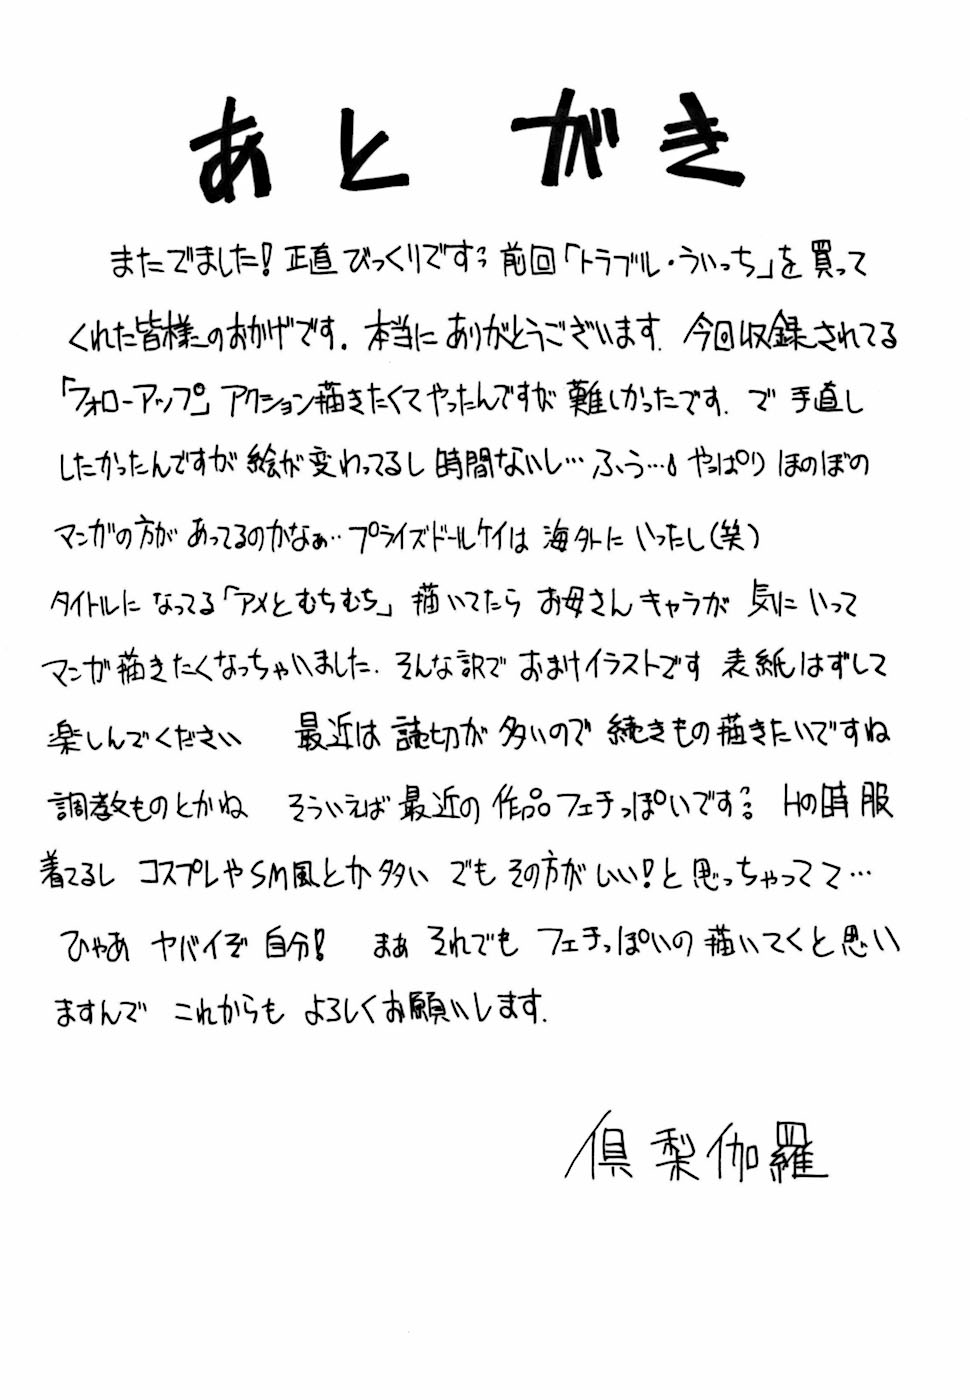 あとがき
またでました！正直びっくりです 前回「トラブル・うぃっち」を買って
くれた皆様のおかげです。本当にありがとうございます. 今回収録されてる
「フォローアップ」アクション描きたくてやったんですが難しかったです. で 手直し
したかったんですが絵が変わってるし 時間ないし…ふう…。やっぱり ほのぼの
マンガの方が あってるのかなぁ‥プライズドールケイは 海外に いったし(笑)
タイトルに なってる「アメとむちむち」描いてたら お母さんキャラが 気に いって
マンガ描きたくなっちゃいました. そんな訳で おまけイラストです 表紙はずして
楽しんでください 最近は 読切が 多いので 続きもの描きたいですね
調教ものとかね そういえば 最近の 作品フェチっぽいです Hの時 服
着てるし コスプレやSM風とか多い でも その方がいい！と思っちゃってて…
ひゃあ ヤバイぞ 自分！ まぁ それでも フェチっぽいの 描いてくと思い
ますんで これからも よろしくお願いします.
倶梨伽羅